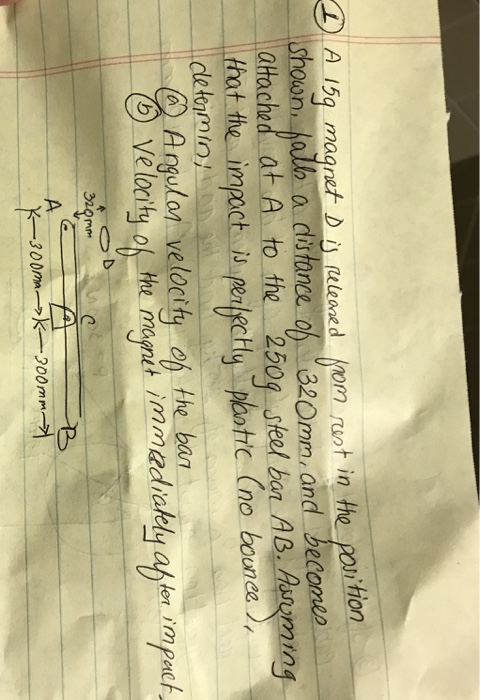 ① A 15g magnet D is released from rest in the position
shown, falls a distance of 320mm, and becomes
attached at A to the 250g steel bar AB. Assuming
that the impact is perfectly plastic (no bounce),
determin;
ⓐ Angular velocity of the bar
ⓑ Velocity of the magnet immediately after impact.
D
320mm
A
C
B
300mm
300mm